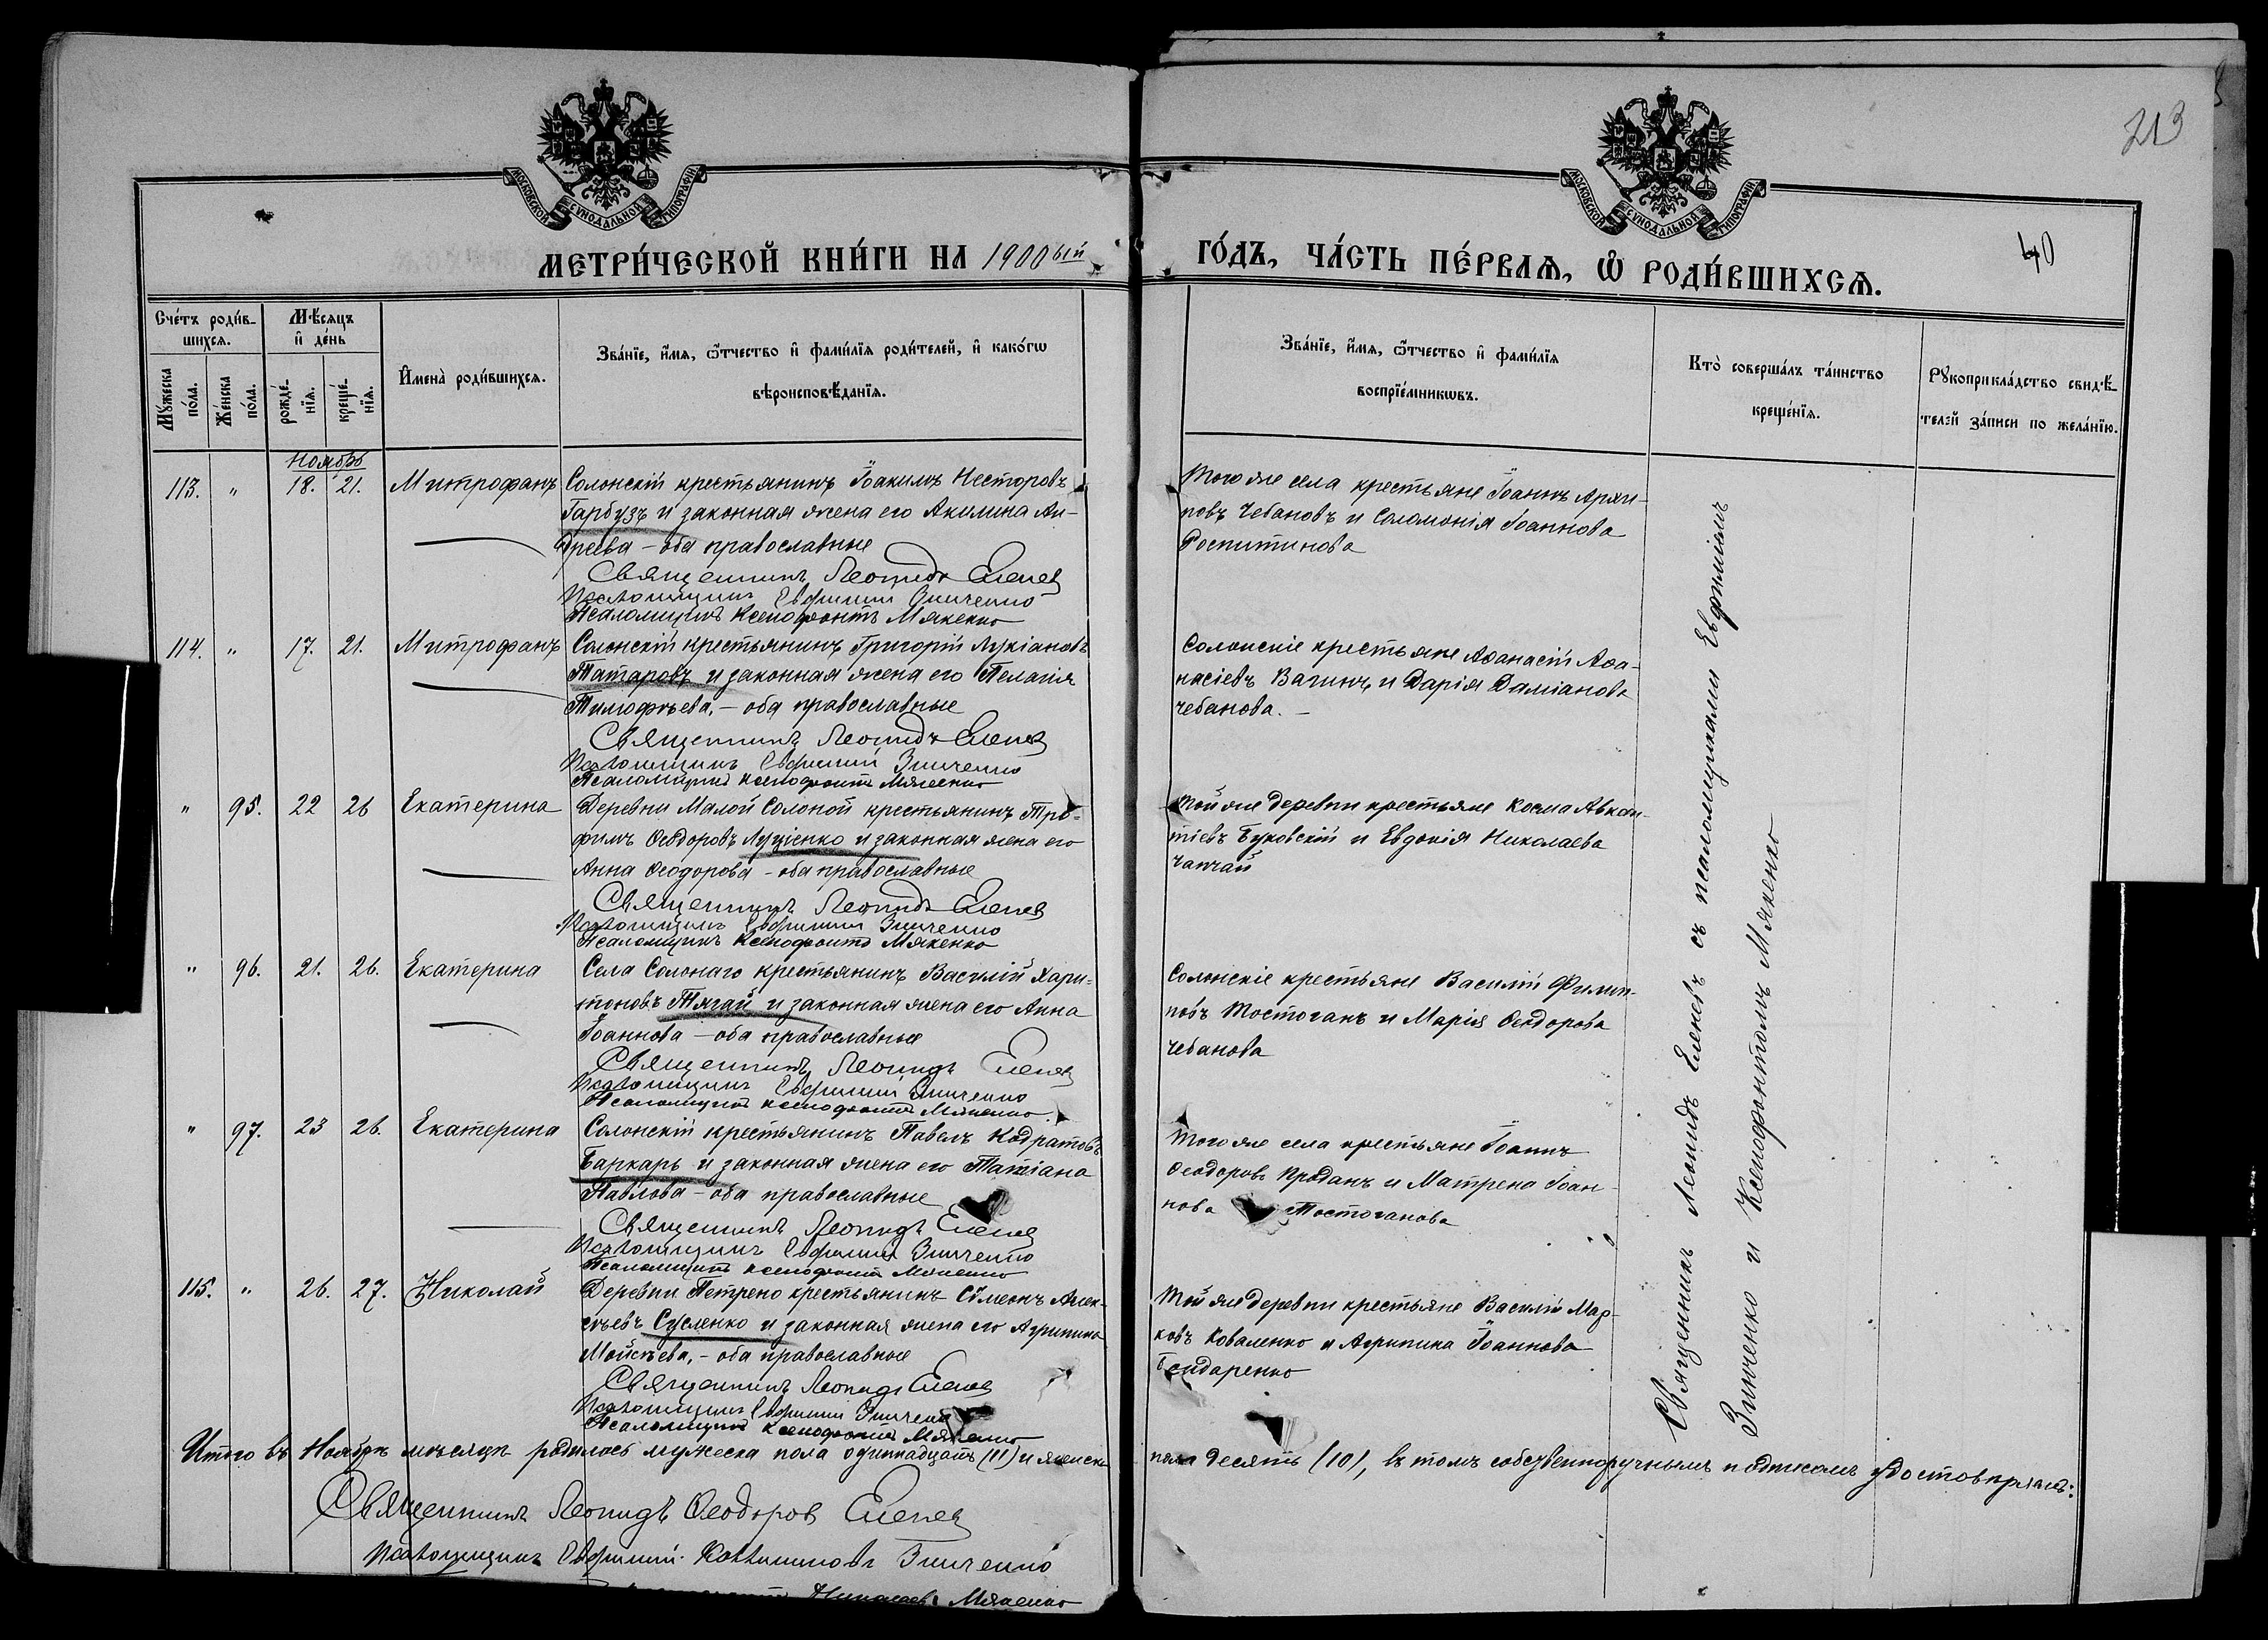 213
МОСКОВСКОЙ СѴНОДАЛЬНОЙ ТИПОГРАФІИ
МОСКОВСКОЙ СѴНОДАЛЬНОЙ ТИПОГРАФІИ
40
МЕТРИ́ЧЕСКОЙ КНИ́ГИ НА 1900ый
ГО́ДЪ, ЧА́СТЬ ПЕ́РВАѦ, Ѿ РОДИ́ВШИХСѦ.
Сче́тъ роди́в-
шихсѧ.
Мѣ́сѧцъ
и҆ де́нь
Мꙋ́жеска
по́ла.
Же́нска
по́ла.
рожде́-
нїѧ.
креще́-
нїѧ.
И҆мена̀ роди́вшихсѧ.
Зва́нїе, и҆́мѧ, ѻ҆́тчество и҆ фами́лїѧ роди́телей, и҆ како́гѡ
вѣроисповѣ́данїѧ.
Зва́нїе, и҆́мѧ, ѻ҆́тчество и҆ фами́лїѧ
воспрїе́мникѡвъ.
Кто̀ соверша́лъ та́инство
креще́нїѧ.
Рꙋкоприкла́дство свидѣ́-
телей за́писи по жела́нїю.
Ноябрь
113. " 18. 21. Митрофанъ Солонскій крестьянинъ Іоакимъ Несторовъ
Гарбузъ и законная жена его Акилина Ан-
дреева - оба православные
Священникъ Леонидъ Еленев
Псаломщикъ Евфимий Зинченко
Псаломщикъ Ксенофонтъ Мякенко
Того же села крестьяне Іоаннъ Архи-
повъ Чебановъ и Соломонія Іоаннова
Роспитинова
114. " 17. 21. Митрофанъ Солонскій крестьянинъ Григорій Лукіановъ
Татаровъ и законная жена его Пелагія
Тимофѣева, - оба православные
Священникъ Леонидъ Еленев
Псаломщикъ Евфимий Зинченко
Псаломщикъ Ксенофонтъ Мякенко
Солонскіе крестьяне Аѳанасій Аѳа-
насіевъ Вагинъ и Дарія Даміанова
Чебанова. -
" 95. 22 26 Екатерина Деревни Малой Солоной крестьянинъ Тро-
фимъ Ѳеодоровъ Луценко и законная жена его
Анна Ѳеодорова - оба православные
Священникъ Леонидъ Еленев
Псаломщикъ Евфимий Зинченко
Псаломщикъ Ксенофонтъ Мякенко
Той же деревни крестьяне Косма Авксен-
тіевъ Буковскій и Евдокія Николаева
Чапчай
" 96. 21. 26. Екатерина Села Солонаго крестьянинъ Василій Хари-
тоновъ Тягай и законная жена его Анна
Іоаннова - оба православные
Священникъ Леонидъ Еленев
Псаломщикъ Евфимий Зинченко
Псаломщикъ Ксенофонтъ Мякенко
Солонскіе крестьяне Василій Филип-
повъ Тостоганъ и Марія Ѳеодорова
Чебанова
" 97. 23 26. Екатерина Солонскій крестьянинъ Павелъ Кодратовъ
Баркарь и законная жена его Татіана
Павлова - оба православные
Священникъ Леонидъ Еленев
Псаломщикъ Евфимий Зинченко
Псаломщикъ Ксенофонтъ Мякенко
Того же села крестьяне Іоаннъ
Ѳеодоровъ Проданъ и Матрена Іоан-
нова Тостоганова
115. " 26. 27. Николай Деревни Петрено крестьянинъ Сѵмеонъ Алек-
сѣевъ Сусленко и законная жена его Агрипина
Мойсѣева, - оба православные
Священникъ Леонидъ Еленев
Псаломщикъ Евфимий Зинченко
Псаломщикъ Ксенофонтъ Мякенко
Той же деревни крестьяне Василій Мар-
ковъ Коваленко и Агрипина Іоаннова
Бондаренко
Священникъ Леонидъ Еленевъ съ псаломщиками Евфиміемъ
Зинченко и Ксенофонтомъ Мякенко
Итого въ Ноябрѣ мѣсяцѣ родилось мужеска пола одиннадцать (11) и женска
пола десять (10), въ томъ собственноручнымъ подписомъ удостовѣряемъ:
Священникъ Леонидъ Ѳеодоров Еленев
Псаломщикъ Евфимий Зинченко
Николаевъ Мякенко